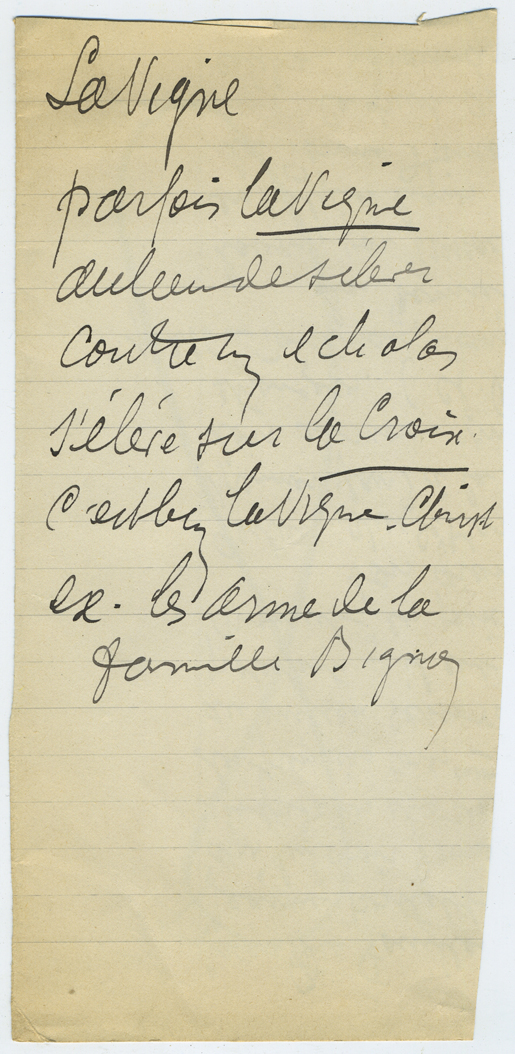 La Vigne
parfois la Vigne
au lieu de s'élever
contre un echalas
s'élève sur la Croix.
C'est bien la Vigne. Christ
ex. les arme de la
famille Bignon